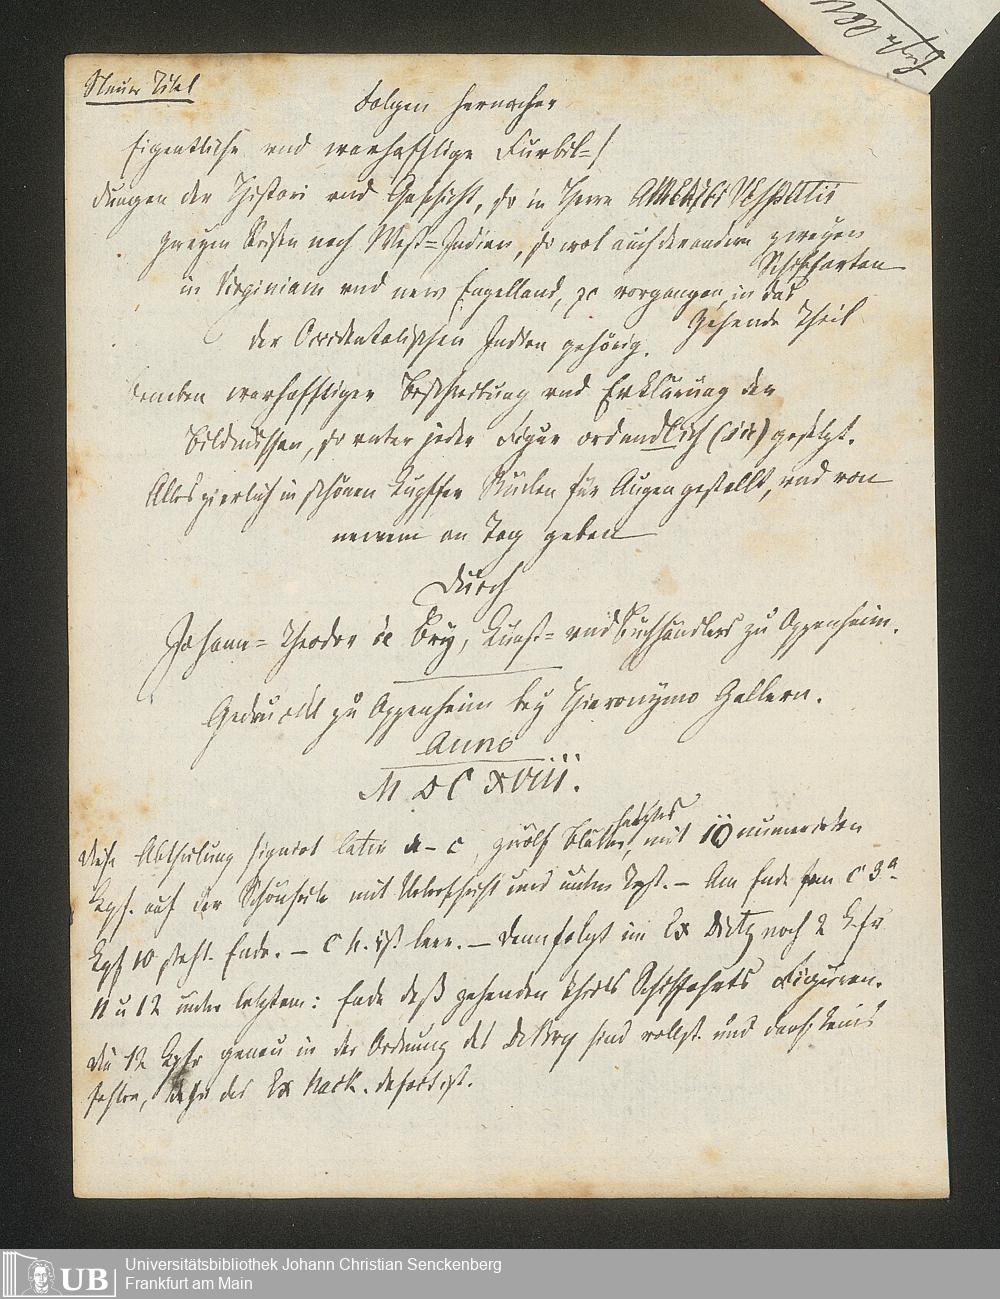 Neuer Titel
Folgen hernacher
Eigentliche vnd warhafftige Furbil=/
dungen der Histori vnd Geschicht, so in Herrn AMERICI VESPUTII
zweyen Reisen nach West=Indien, so wol auch der andern zweyen
Schiffarten
in Virginiam vnd new Engelland, ꝛc vorgangen, in das
Zehende Theil
der Occidentalischen Indien gehörig.
warhafftiger Beschreibung vnd Erklärung der
Bildnüssen, so vnter jeder Figur ordendlich (sic) gesetzt.
Alles zierlich in schönen Kupffer Stücken für Augen gestellt, vnd von
newem an Tag geben
Durch
Johann= Theodor de Bry, Kunst= vnd Buchhändlers zu Oppenheim.
Gedruckt zu Oppenheim bey Hieronymo Gallern.
Anno
M DC XVIII.
Diese Abtheilung signirt latein a–c, zwölf Blätter, mit 10 numerirten
Kpf. auf der Schönseite mit Ueberschrift und unten Text. – Am Ende C 3a
Kpf 10 steht Ende. – C 4. ist leer. – Dann folgt im Ex Dietz noch 2 Kpfr
11 u 12 unter letztem: Ende deß zehenden theils Schiffahrts Figuren.
Die 12 Kpfr genau in der Ordnung des De Bry sind vollst. und darf keins
fehlen, das Ex Hack. defect ist.
Universitätsbibliothek Johann Christian Senckenberg
UB Frankfurt am Main